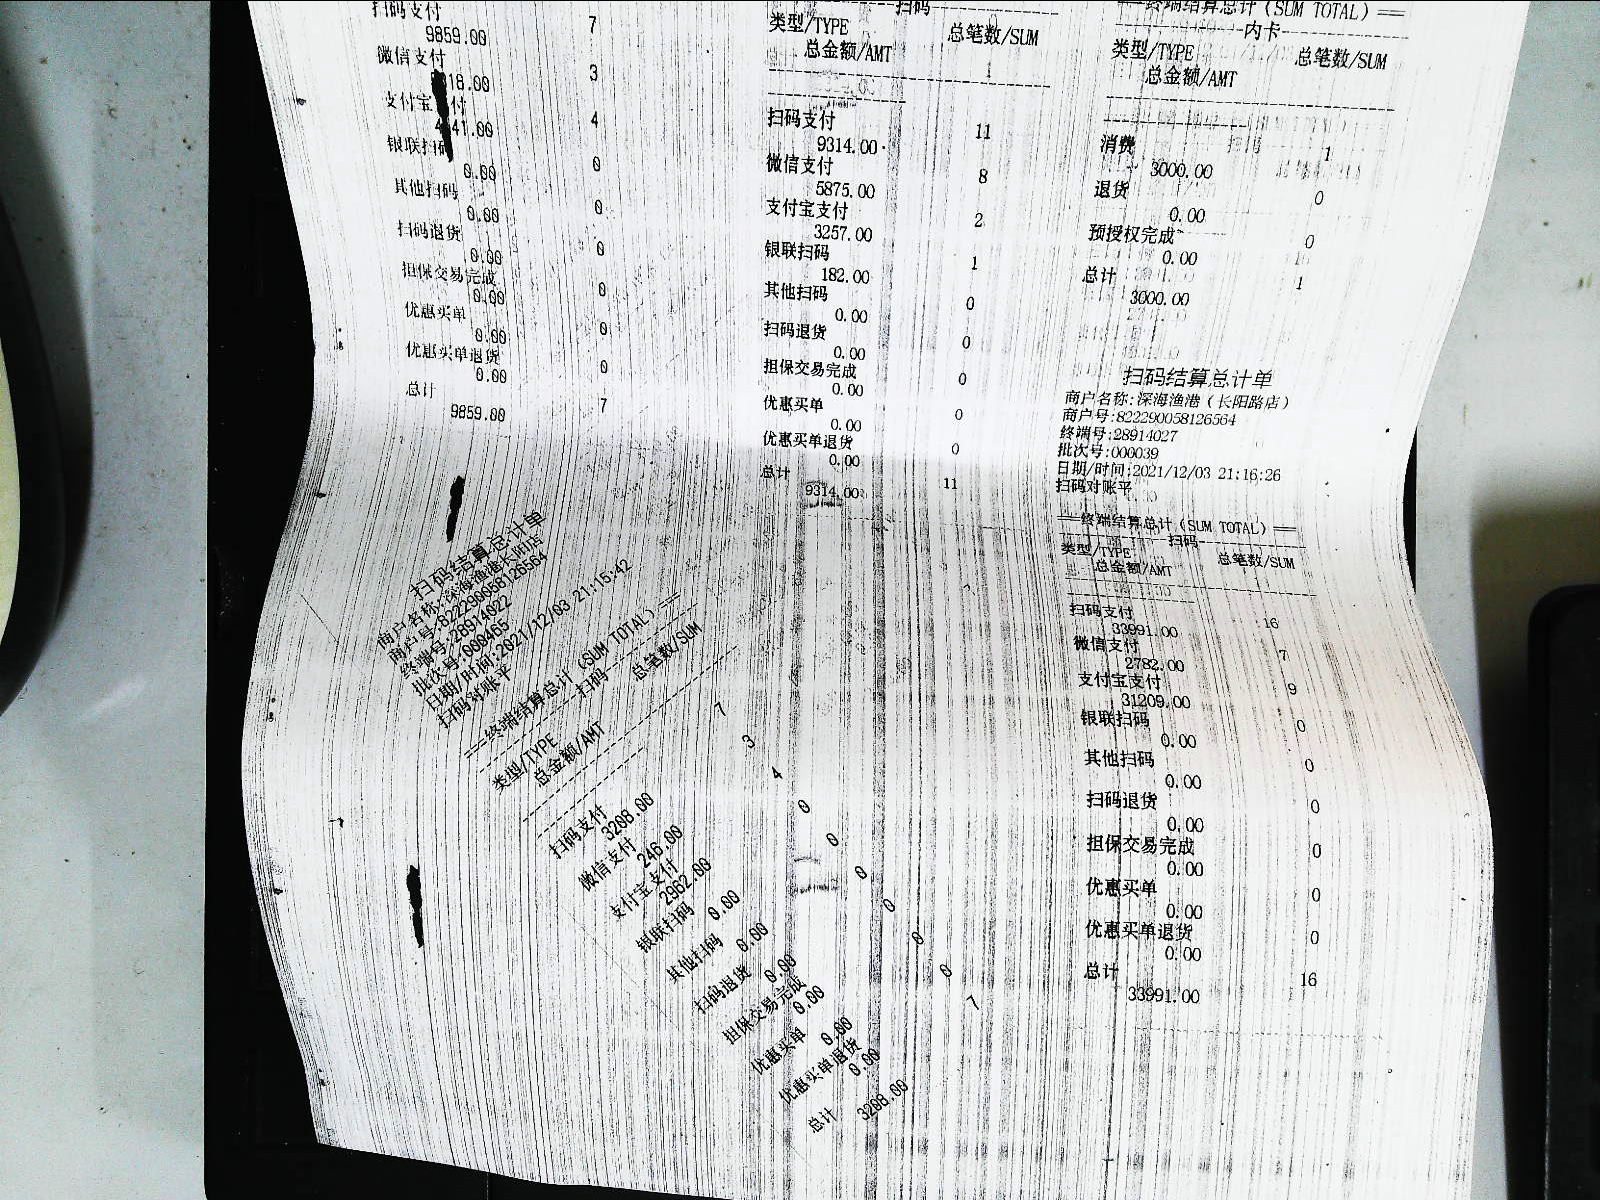 扫码支付 7
9859.00
微信支付 3
18.00
支付宝 付 4
41.00
银联扫码 0
0.00
其他扫码 0
0.00
扫码退货 0
0.00
担保交易完成 0
0.00
优惠买单 0
0.00
优惠买单退货 0
0.00
总计 7
9859.00
扫码结算总计单
商户名称:深海渔港长阳店
商户号:822290058126564
终端号:28914022
批次号:000465
日期/时间:2021/12/03 21:15:42
扫码对账平
===终端结算总计(SUM TOTAL)===
扫码
类型/TYPE 总笔数/SUM
总金额/AMT
扫码支付 7
3208.00
微信支付 3
246.00
支付宝支付 4
2962.00
银联扫码 0
0.00
其他扫码 0
0.00
扫码退货 0
0.00
担保交易完成 0
0.00
优惠买单 0
0.00
优惠买单退货 0
0.00
总计 7
3208.00
扫码
类型/TYPE 总笔数/SUM
总金额/AMT
扫码支付 11
9314.00
微信支付 8
5875.00
支付宝支付 2
3257.00
银联扫码 1
182.00
其他扫码 0
0.00
扫码退货 0
0.00
担保交易完成 0
0.00
优惠买单 0
0.00
优惠买单退货 0
0.00
总计 11
9314.00
==终端结算总计(SUM TOTAL)==
内卡
类型/TYPE 总笔数/SUM
总金额/AMT
消费 1
3000.00
退货 0
0.00
预授权完成 0
0.00
总计 1
3000.00
扫码结算总计单
商户名称:深海渔港(长阳路店)
商户号:822290058126564
终端号:28914027
批次号:000039
日期/时间:2021/12/03 21:16:26
扫码对账平
==终端结算总计(SUM TOTAL)==
扫码
类型/TYPE 总笔数/SUM
总金额/AMT
扫码支付 16
33991.00
微信支付 7
2782.00
支付宝支付 9
31209.00
银联扫码 0
0.00
其他扫码 0
0.00
扫码退货 0
0.00
担保交易完成 0
0.00
优惠买单 0
0.00
优惠买单退货 0
0.00
总计 16
33991.00